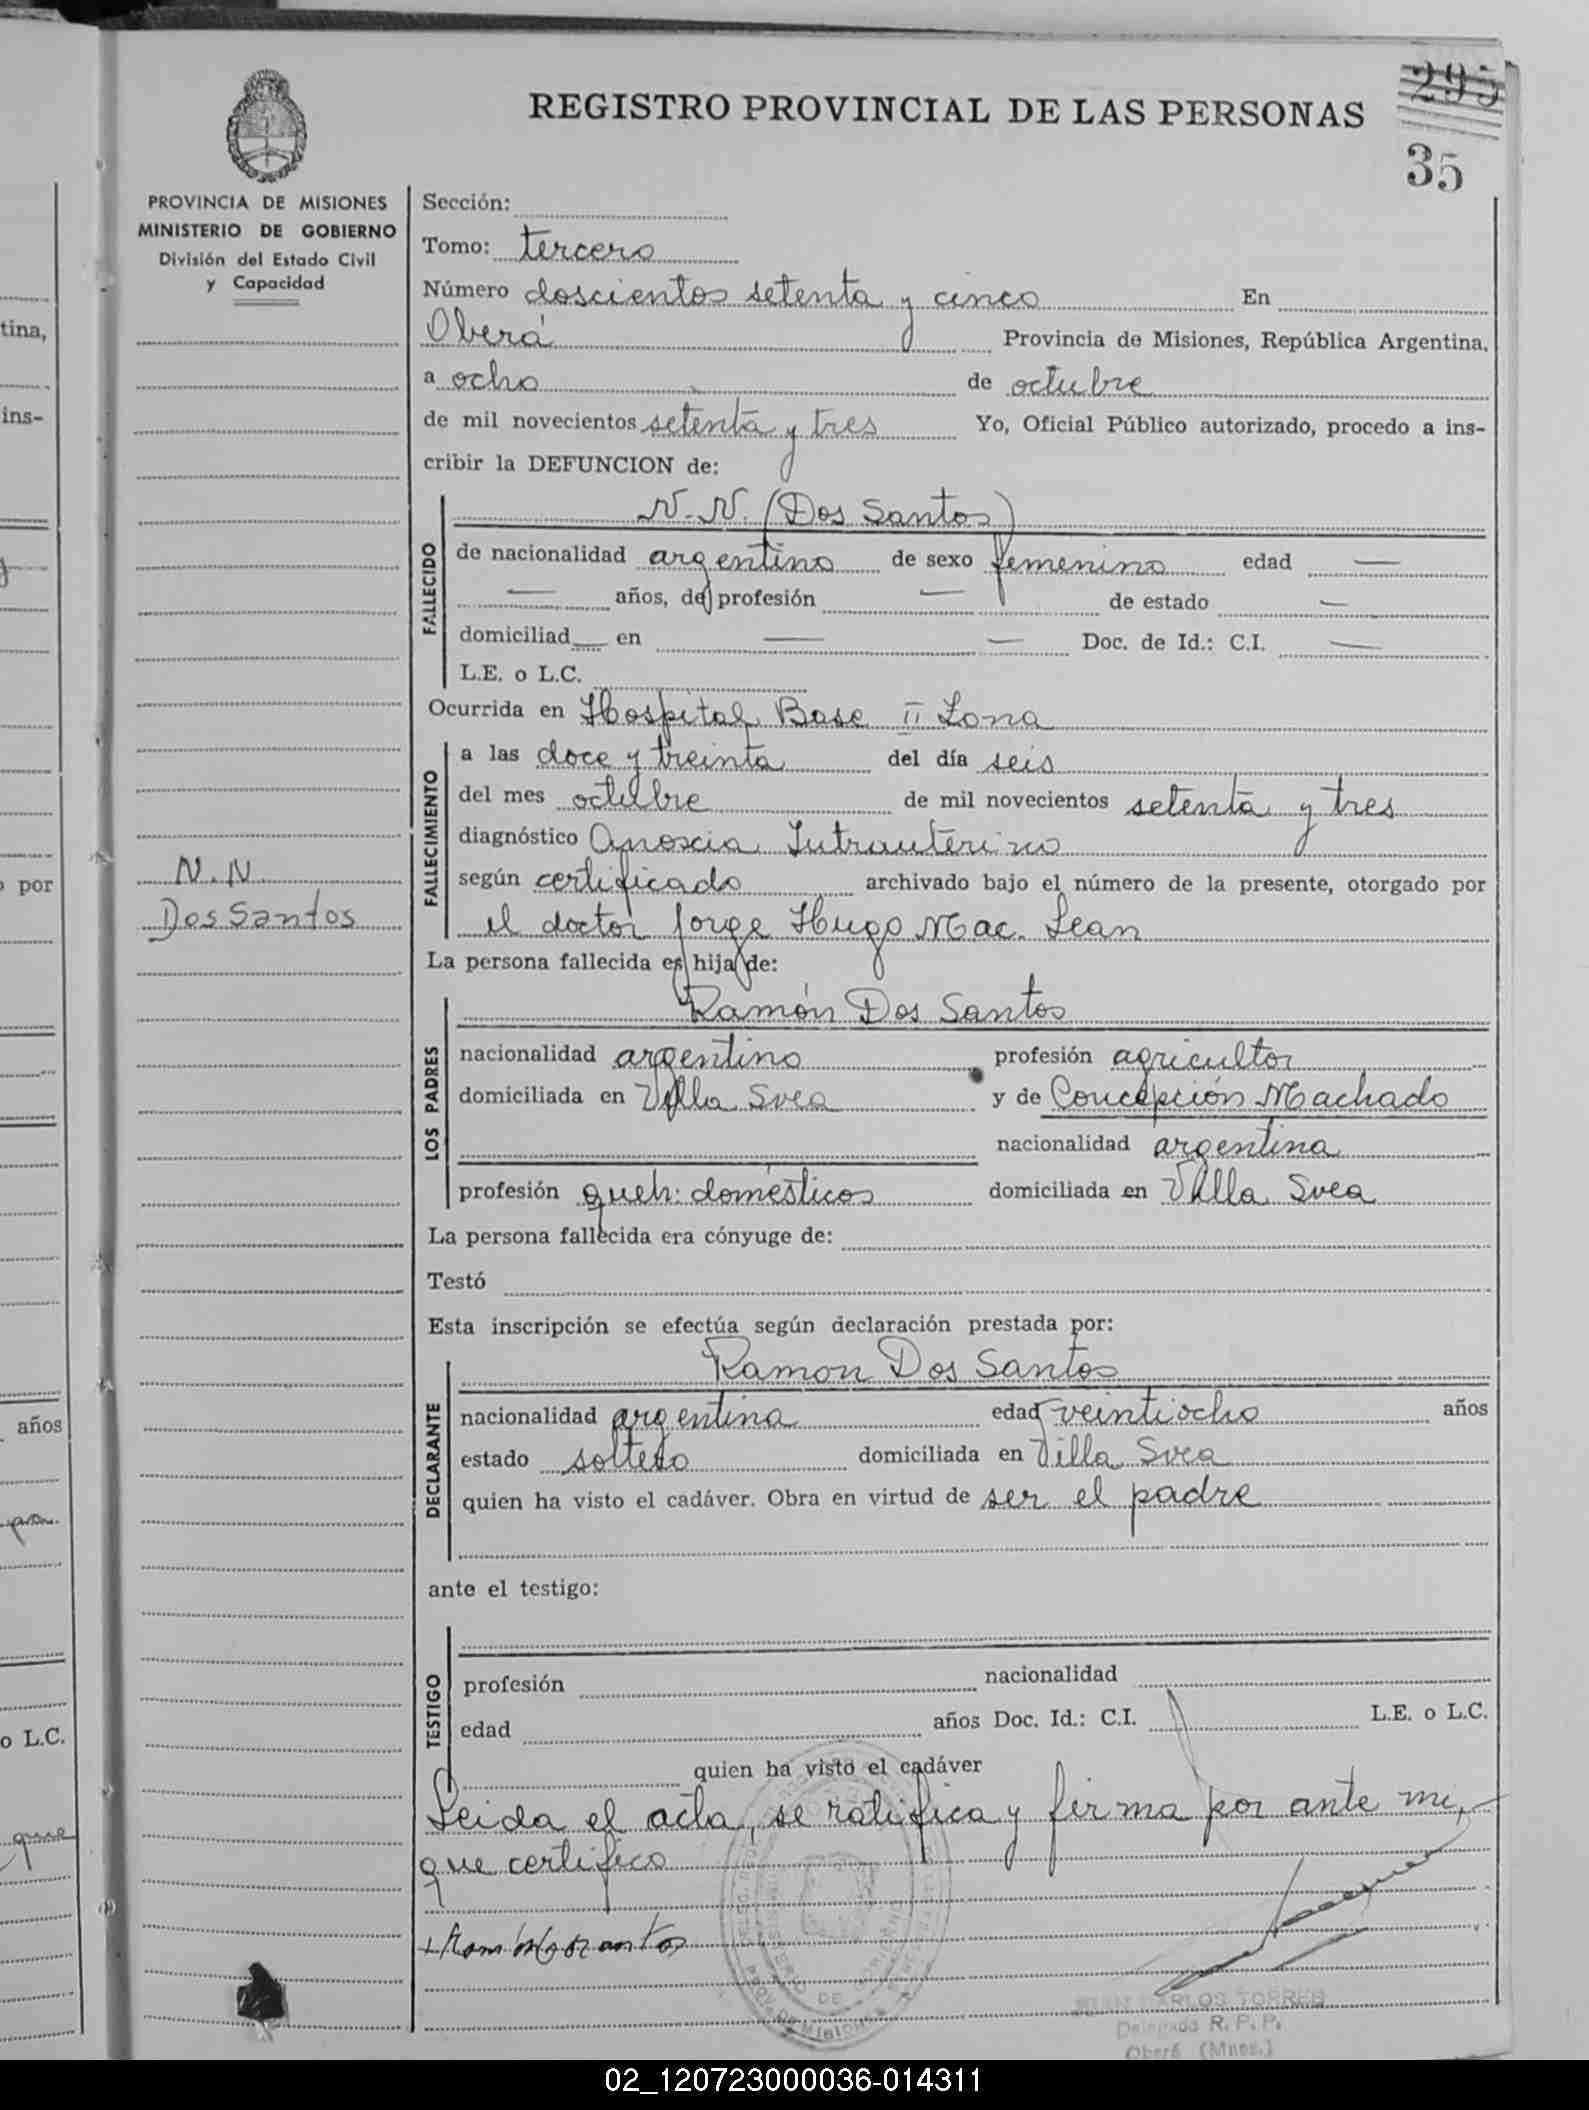 295
REGISTRO PROVINCIAL DE LAS PERSONAS
35
PROVINCIA DE MISIONES
MINISTERIO DE GOBIERNO
División del Estado Civil
y Capacidad
Sección:
Tomo: tercero
Número doscientos setenta y cinco En
Oberá Provincia de Misiones, República Argentina,
a ocho de octubre
de mil novecientos setenta y tres Yo, Oficial Público autorizado, procedo a ins-
cribir la DEFUNCION de:
FALLECIDO
N.N. (Dos Santos)
de nacionalidad argentino de sexo femenino edad —
— años, de profesión — de estado —
domiciliad— en — — Doc. de Id.: C.I. —
L.E. o L.C.
Ocurrida en Hospital Base II Zona
FALLECIMIENTO
a las doce y treinta del día seis
del mes octubre de mil novecientos setenta y tres
diagnóstico Anoxia Intrauterino
según certificado archivado bajo el número de la presente, otorgado por
el doctor Jorge Hugo Mac. Lean
N.N.
Dos Santos
La persona fallecida es hija de:
LOS PADRES
Ramón Dos Santos
nacionalidad argentino profesión agricultor
domiciliada en Villa Svea y de Concepción Machado
nacionalidad argentina
profesión queh: domésticos domiciliada en Villa Svea
La persona fallecida era cónyuge de:
Testó
Esta inscripción se efectúa según declaración prestada por:
DECLARANTE
Ramon Dos Santos
nacionalidad argentina edad veintiocho años
estado soltero domiciliada en Villa Svea
quien ha visto el cadáver. Obra en virtud de ser el padre
ante el testigo:
TESTIGO
profesión nacionalidad
edad años Doc. Id.: C.I. L.E. o L.C.
quien ha visto el cadáver
Leida el acta, se ratifica y firma por ante mi,
que certifico
JUAN CARLOS TORRES
Delegado R. P. P.
Oberá (Mnes.)
tina,
ins-
por
años
o L.C.
que
02_120723000036-014311